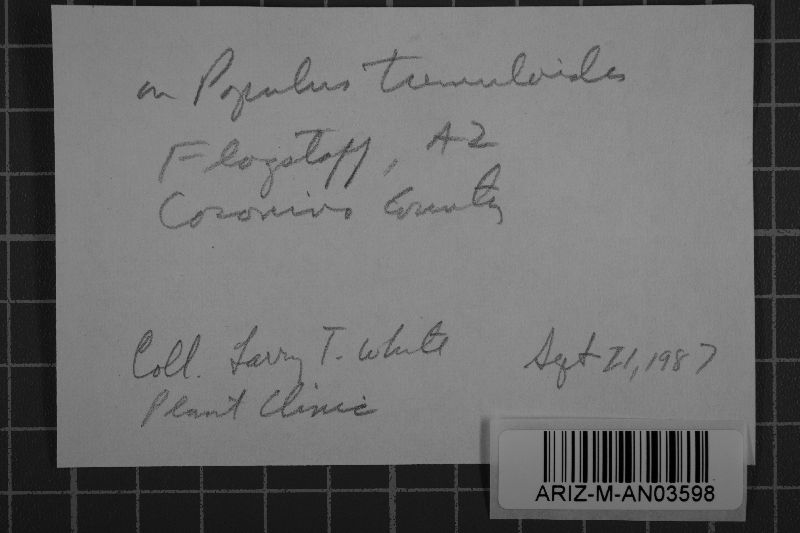 on Populus tremuloides
Flagstaff, AZ
Coconino County
Coll. Larry T. White Sept 21, 1987
Plant Clinic
ARIZ-M-AN03598